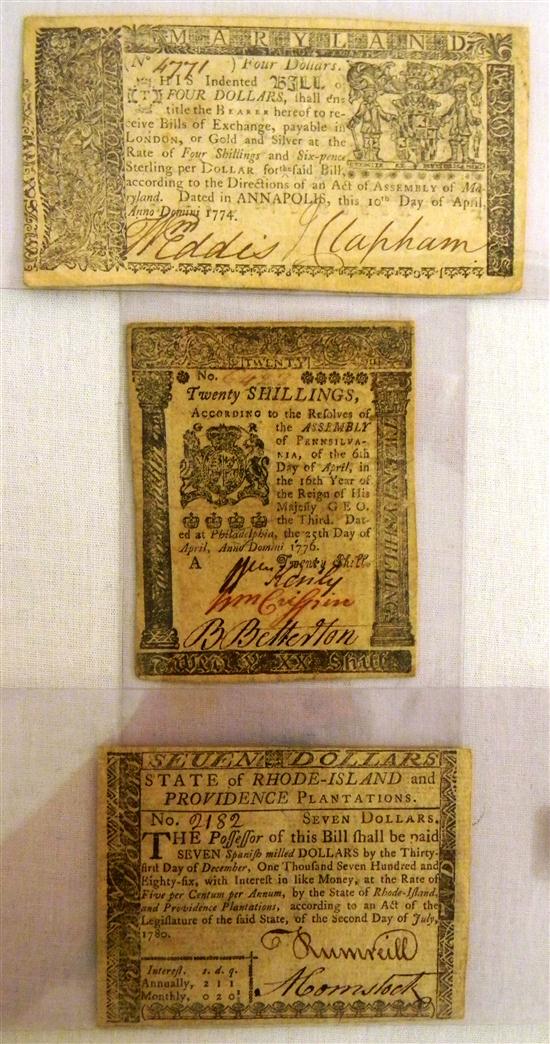 MARYLAND
No 4771 ) Four Dollars.
THIS Indented BILL of
FOUR DOLLARS, shall en-
title the BEARER hereof to re-
ceive Bills of Exchange, payable in
LONDON, or Gold and Silver at the
Rate of Four Shillings and Six-pence
Sterling per DOLLAR for the said Bill,
according to the Directions of an Act of ASSEMBLY of Ma-
ryland. Dated in ANNAPOLIS, this 10th Day of April,
Anno Domini 1774.
Wm Eddis J Clapham
TWENTY
No.
Twenty SHILLINGS,
ACCORDING to the Resolves of
the ASSEMBLY
G R
of PENNSILVA-
NIA, of the 6th
Day of April, in
the 16th Year of
the Reign of His
Majesty GEO.
the Third. Dat-
ed at Philadelphia, the 25th Day of
April, Anno Domini 1776.
A Twenty Shill.
Kenly
Wm Griffin
B Betterton
TWENTY SHILLINGS
XX Shill
SEVEN DOLLARS
STATE of RHODE-ISLAND and
PROVIDENCE PLANTATIONS.
No. 2182 SEVEN DOLLARS.
THE Possessor of this Bill shall be paid
SEVEN Spanish milled DOLLARS by the Thirty-
first Day of December, One Thousand Seven Hundred and
Eighty-six, with Interest in like Money, at the Rate of
Five per Centum per Annum, by the State of Rhode-Island,
and Providence Plantations, according to an Act of the
Legislature of the said State, of the Second Day of July,
1780.
Rumreill
Interest. s. d. q.
Annually, 2 1 1
Monthly, 0 2 0½
A Comstock